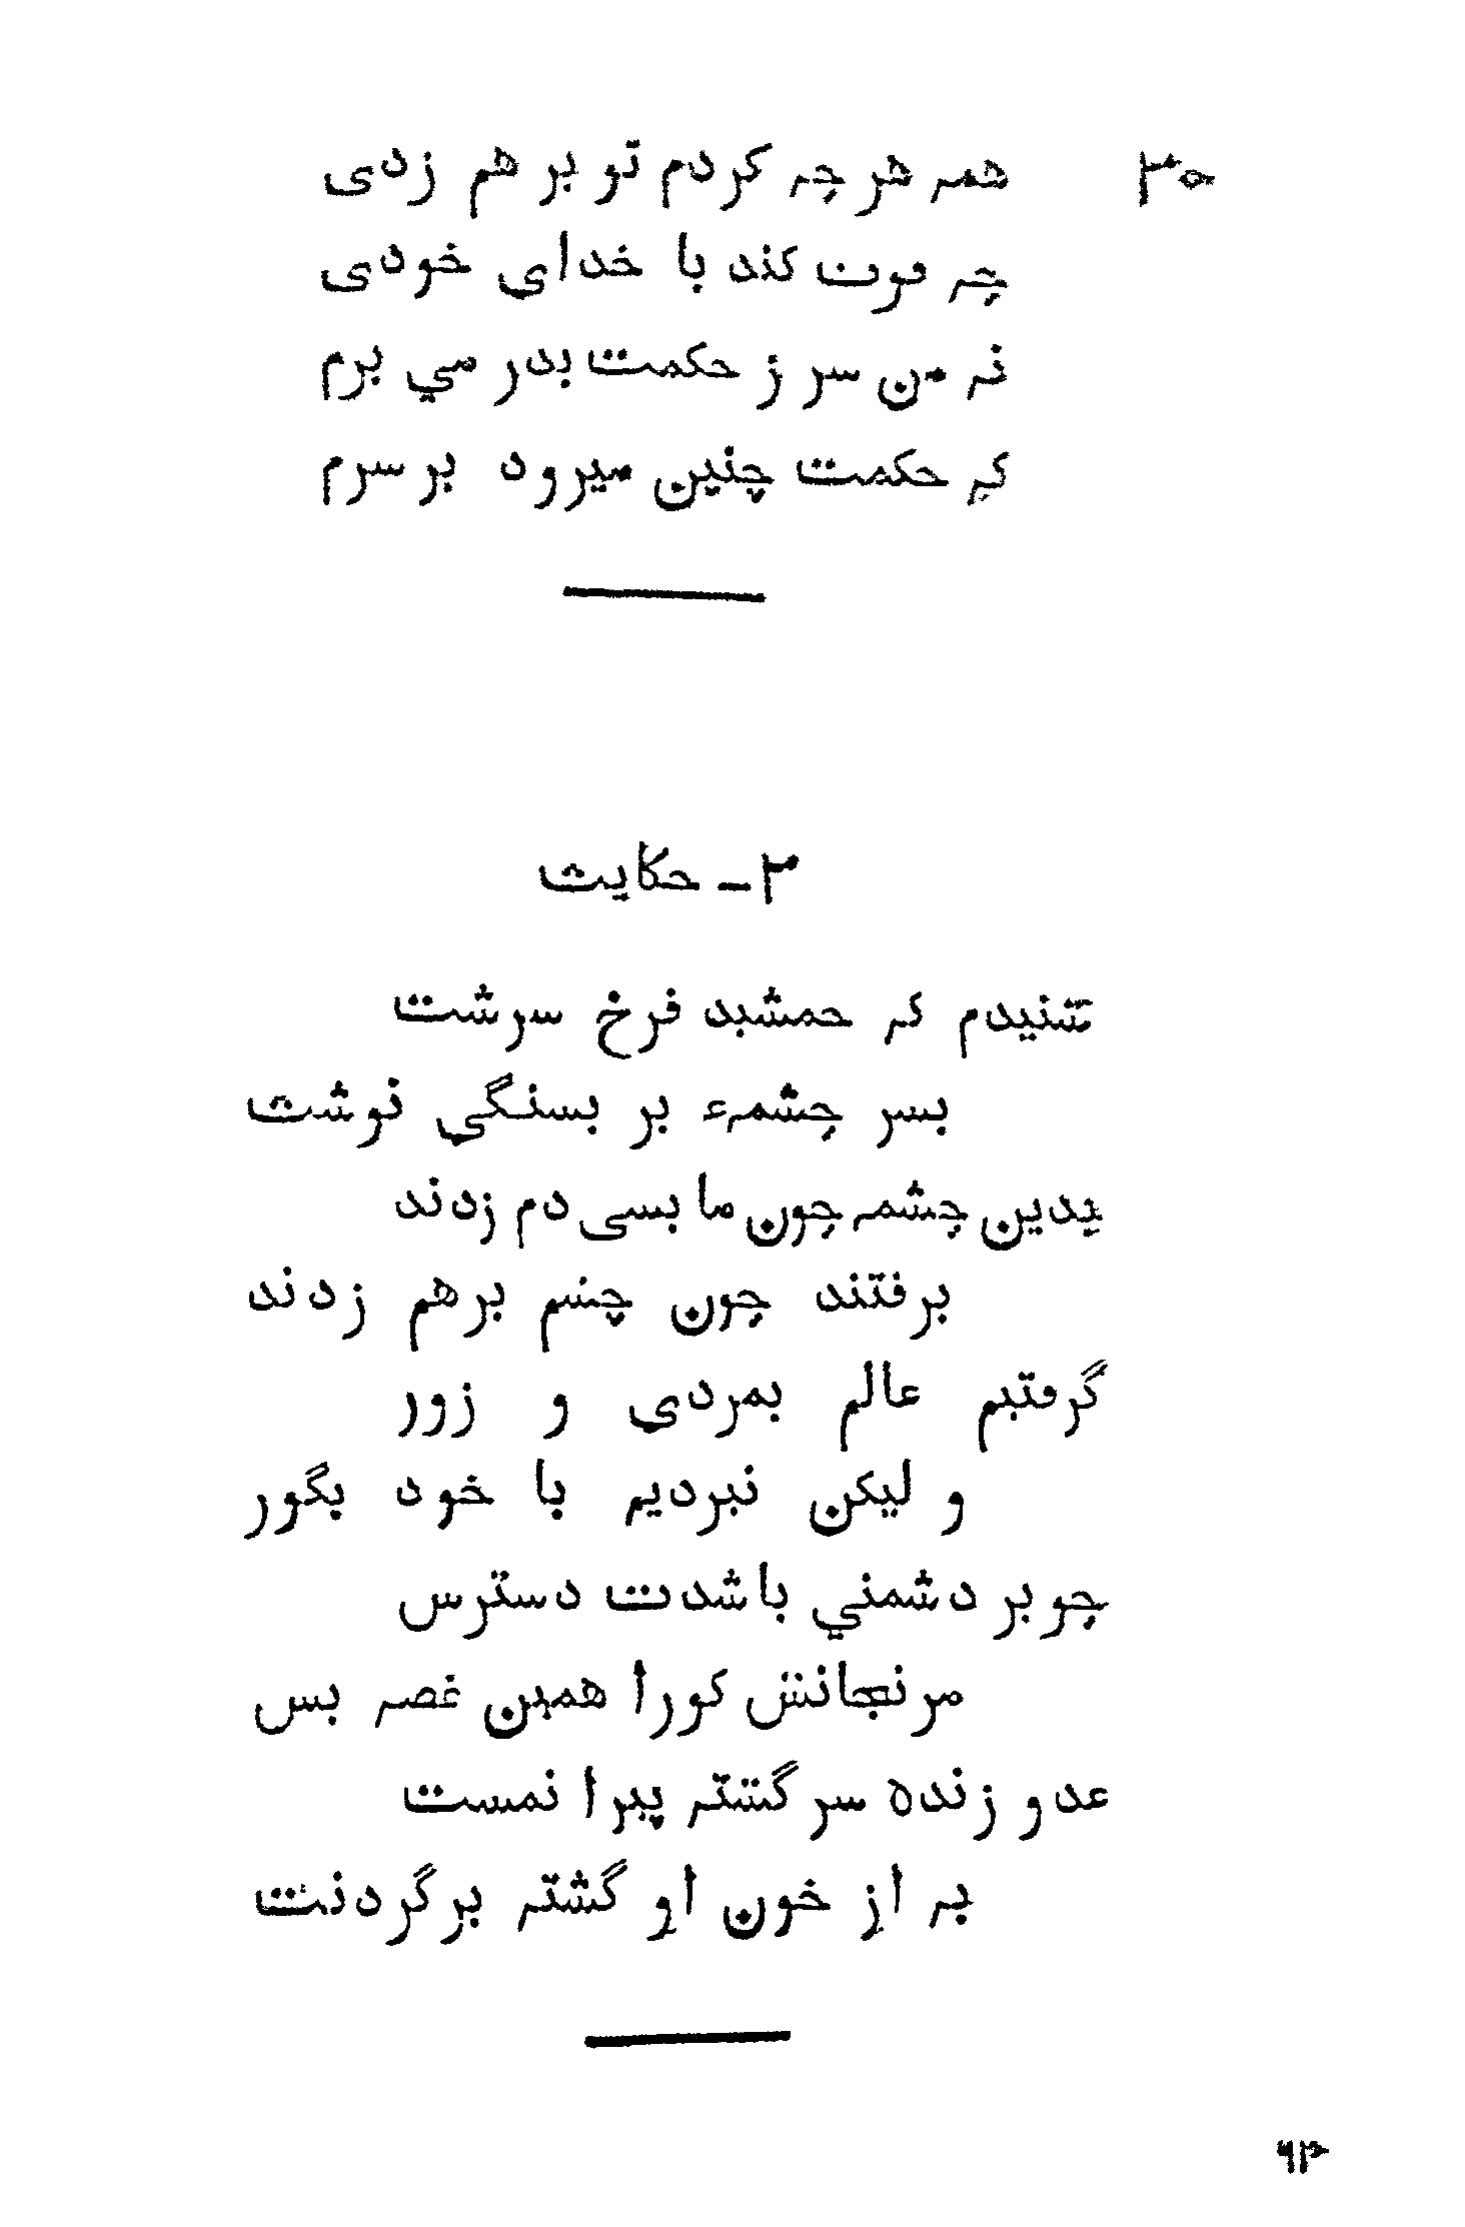 همه هر چه کردم تو بر هم زدی
چه قوت کند با خدای خودی
نه من سر ز حکمت بدر می برم
که حکمت چنین میرود بر سرم
۲ـ حکایت
شنیدم که جمشید فرخ سرشت
بسر چشمهء بر بسنگی نوشت
بدین چشمه چون ما بسی دم زدند
برفتند چون چشم برهم زدند
گرفتیم عالم بمردی و زور
و لیکن نبردیم با خود بگور
چو بر دشمنی باشدت دسترس
مرنجانش کورا همین غصه بس
عدو زنده سر گشته پیرا نمست
به از خون او گشته بر گردنت